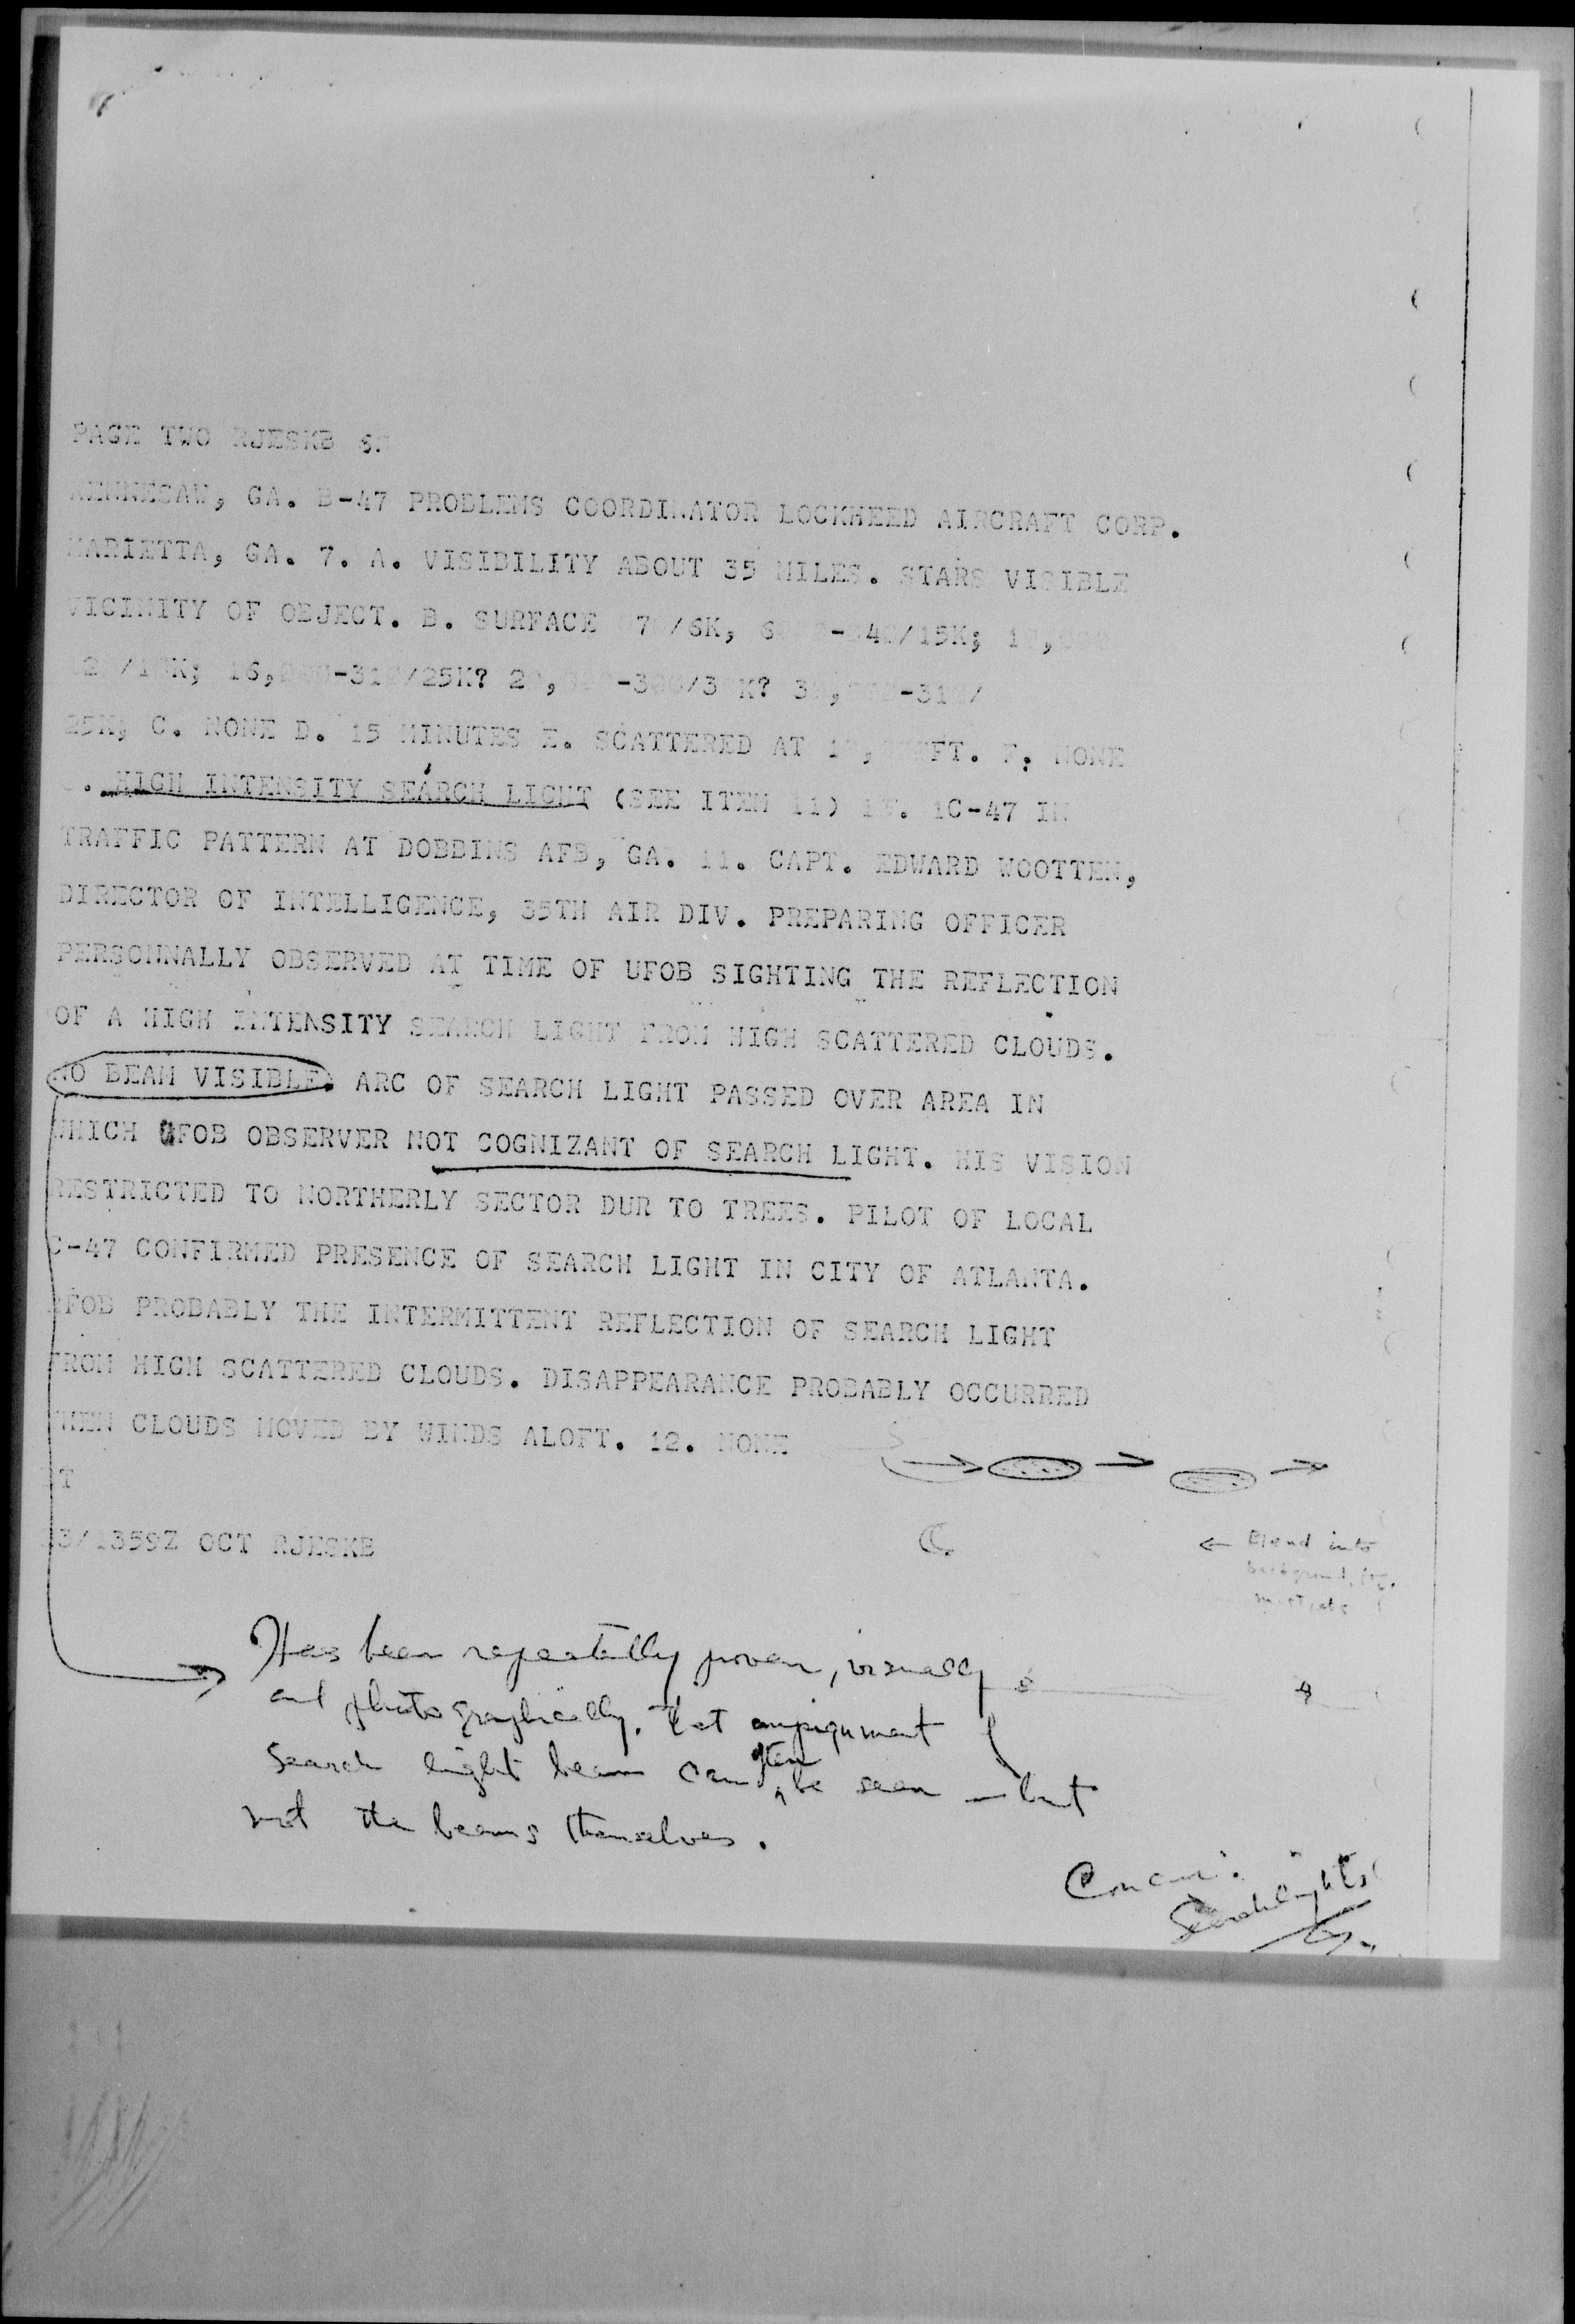 PAGE TWO RJESKB
KENNESAW, GA. B-47 PROBLEMS COORDINATOR LOCKHEED AIRCRAFT CORP.
MARIETTA, GA. 7. A. VISIBILITY ABOUT 35 MILES. STARS VISIBLE
VICINITY OF OBJECT. B. SURFACE /6K, /15K;
/25K?
25K, C. NONE D. 15 MINUTES E. SCATTERED AT FT. F. NONE
HIGH INTENSITY SEARCH LIGHT (SEE ITEM 11) 1C-47 IN
TRAFFIC PATTERN AT DOBBINS AFB, GA. 11. CAPT. EDWARD WOOTTEN,
DIRECTOR OF INTELLIGENCE, 35TH AIR DIV. PREPARING OFFICER
PERSONNALLY OBSERVED AT TIME OF UFOB SIGHTING THE REFLECTION
OF A HIGH INTENSITY SEARCH LIGHT FROM HIGH SCATTERED CLOUDS.
NO BEAM VISIBLE. ARC OF SEARCH LIGHT PASSED OVER AREA IN
WHICH UFOB OBSERVER NOT COGNIZANT OF SEARCH LIGHT. HIS VISION
RESTRICTED TO NORTHERLY SECTOR DUR TO TREES. PILOT OF LOCAL
C-47 CONFIRMED PRESENCE OF SEARCH LIGHT IN CITY OF ATLANTA.
UFOB PROBABLY THE INTERMITTENT REFLECTION OF SEARCH LIGHT
FROM HIGH SCATTERED CLOUDS. DISAPPEARANCE PROBABLY OCCURRED
WHEN CLOUDS MOVED BY WINDS ALOFT. 12. NONE
BT
23/1359Z OCT RJESKB
Blend into
Has been repeatedly proven, visually
and photographically, that impignment of
search light beam can often be seen — but
not the beams themselves.
Concur:
Searchlights